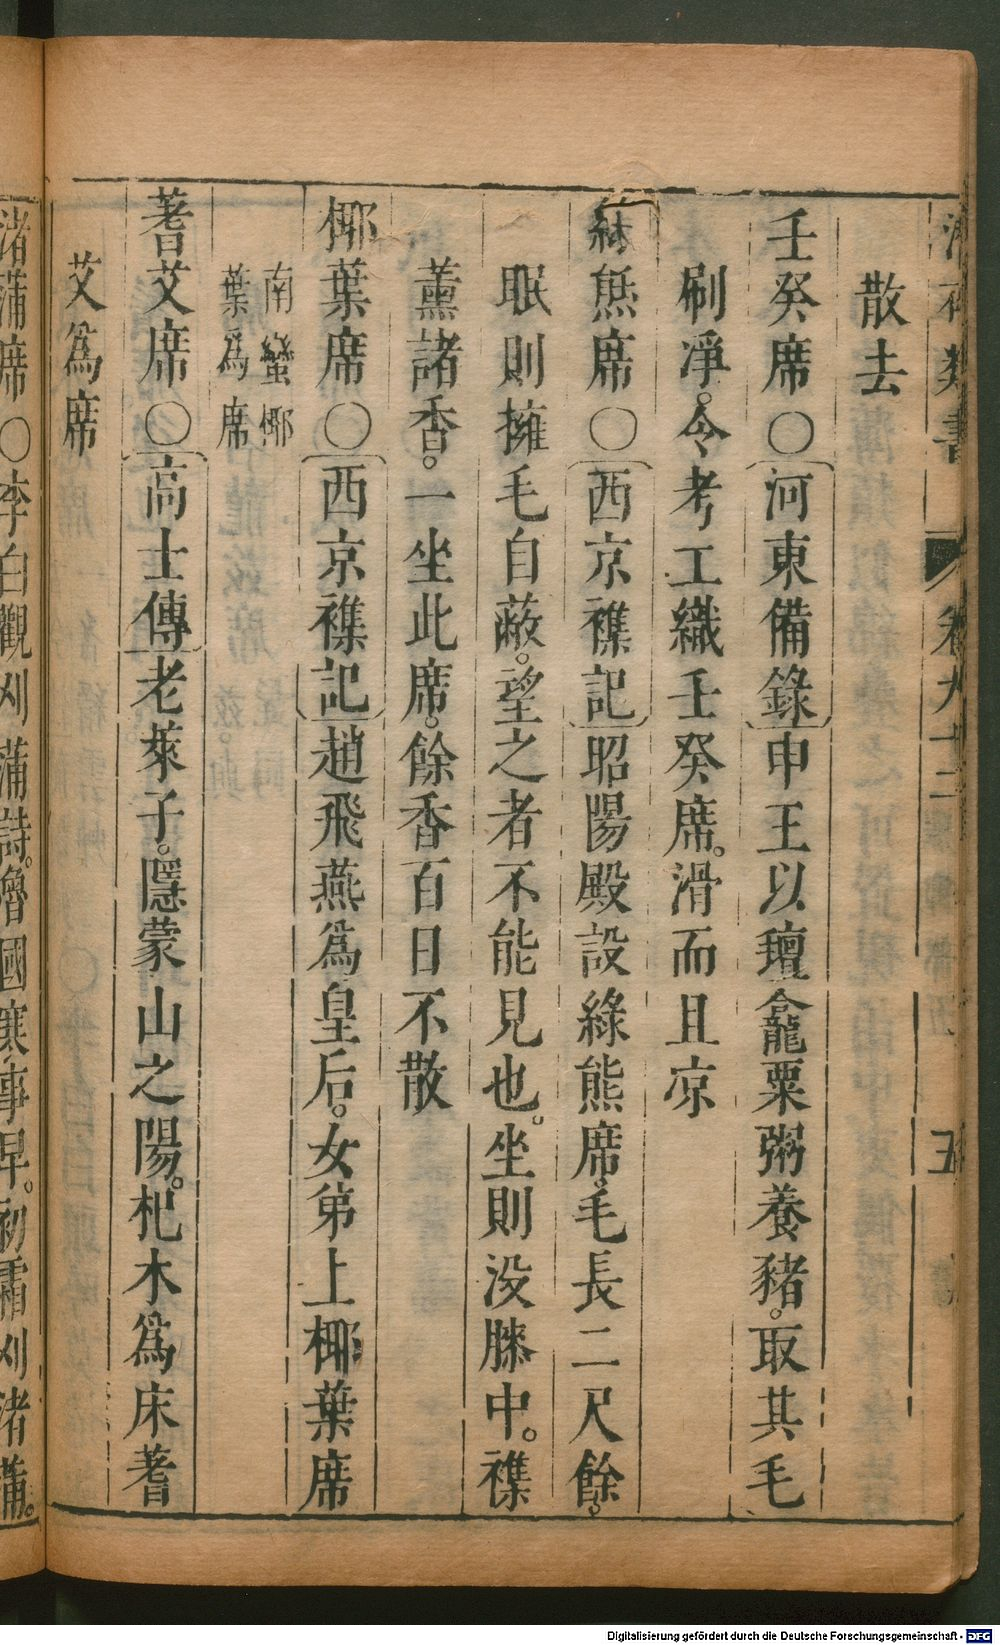 類書 卷九十二 五
散去
壬癸席○河東備錄申王以𤩄龕粟粥養豬。取其毛
刷凈。令考工織壬癸席。滑而且凉
綠熊席○西京襍記昭陽殿設綠熊席。毛長二尺餘。
眠則擁毛自蔽。望之者不能見也。坐則没膝中。襍
薰諸香。一坐此席。餘香百日不散
椰葉席○西京襍記趙飛燕爲皇后。女弟上椰葉席
南蠻椰
葉爲席
蓍艾席○高士傳老萊子。隱蒙山之陽。杝木爲床蓍
艾爲席
渚蒲席○李白觀刈蒲詩。魯國寒事早。初霜刈渚蒲。
Digitalisierung gefördert durch die Deutsche Forschungsgemeinschaft - DFG